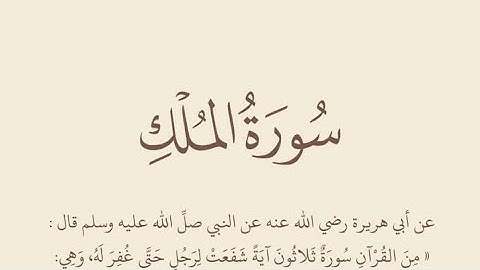 سُورَةُ المُلْكِ
عن أبي هريرة رضي الله عنه عن النبي صلِّ الله عليه وسلم قال :
« مِنَ القُرْآنِ سُورَةٌ ثَلاثُونَ آيَةً شَفَعَتْ لِرَجُلٍ حَتَّى غُفِرَ لَهُ، وَهِيَ: